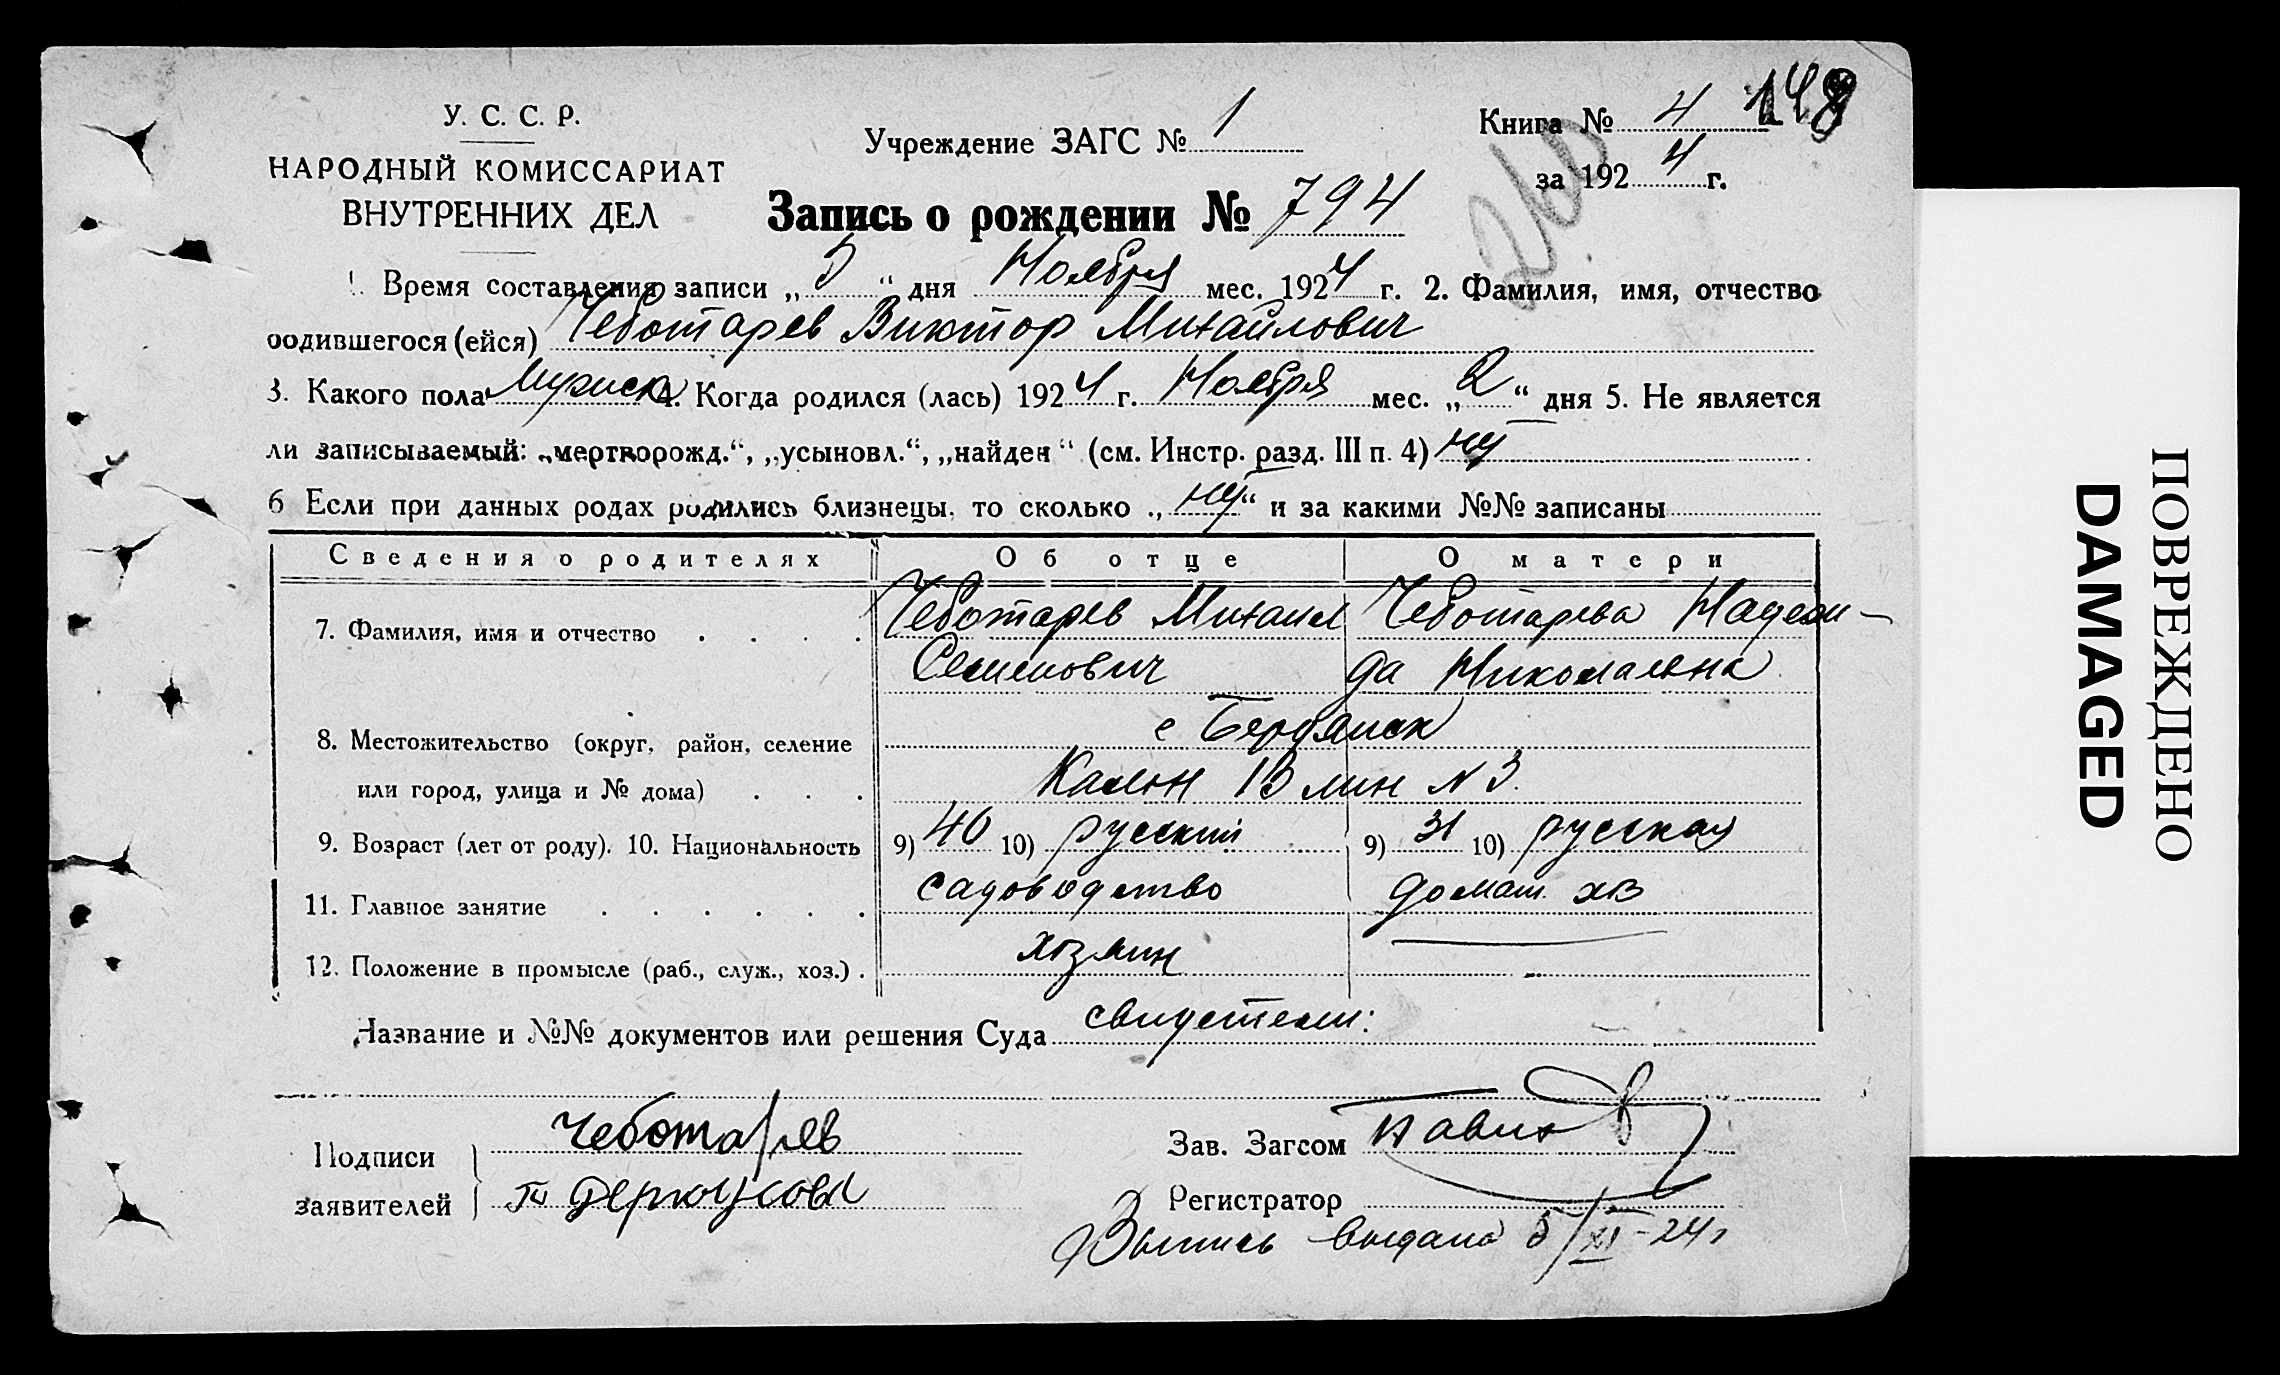 У. С. С. Р.
НАРОДНЫЙ КОМИССАРИАТ
ВНУТРЕННИХ ДЕЛ
Учреждение ЗАГС № 1
Книга № 4 148
за 1924 г.
260
Запись о рождении № 794
1. Время составления записи „5“ дня Ноября мес. 1924 г. 2. Фамилия, имя, отчество
родившегося (ейся) Чеботарев Виктор Михайлович
3. Какого пола Мужск 4. Когда родился (лась) 1924 г. Ноября мес. „2“ дня 5. Не является
ли записываемый: „мертворожд.“, „усыновл.“, „найден“ (см. Инстр. разд. III п. 4) нет
6 Если при данных родах родились близнецы, то сколько „нет“ и за какими №№ записаны
Сведения о родителях Об отце О матери
7. Фамилия, имя и отчество Чеботарев Михаил Чеботарева Надеж-
Семенович да Николаевна
8. Местожительство (округ, район, селение г Бердянск
или город, улица и № дома) Колон 13 лин N 3.
9. Возраст (лет от роду). 10. Национальность 9) 40 10) русский 9) 31 10) русская
11. Главное занятие садоводство домаш. хв
12. Положение в промысле (раб., служ., хоз.) хозяин —
Название и №№ документов или решения Суда свидетели:
Подписи Чеботарев Зав. Загсом
заявителей Регистратор
Выпись выдана 5/XI-24г
ПОВРЕЖДЕНО
DAMAGED